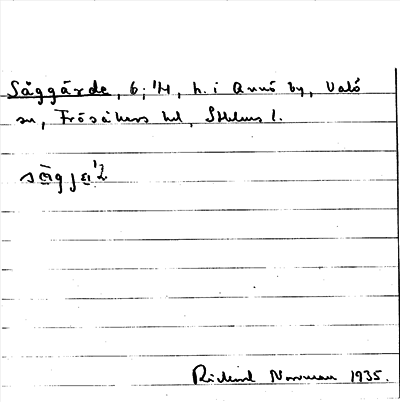 Såggärde, b; 1/4, h. i Annö by, Valö
sn, Frösåkers hd, Sthlms l.
Rickard Norrman 1935.